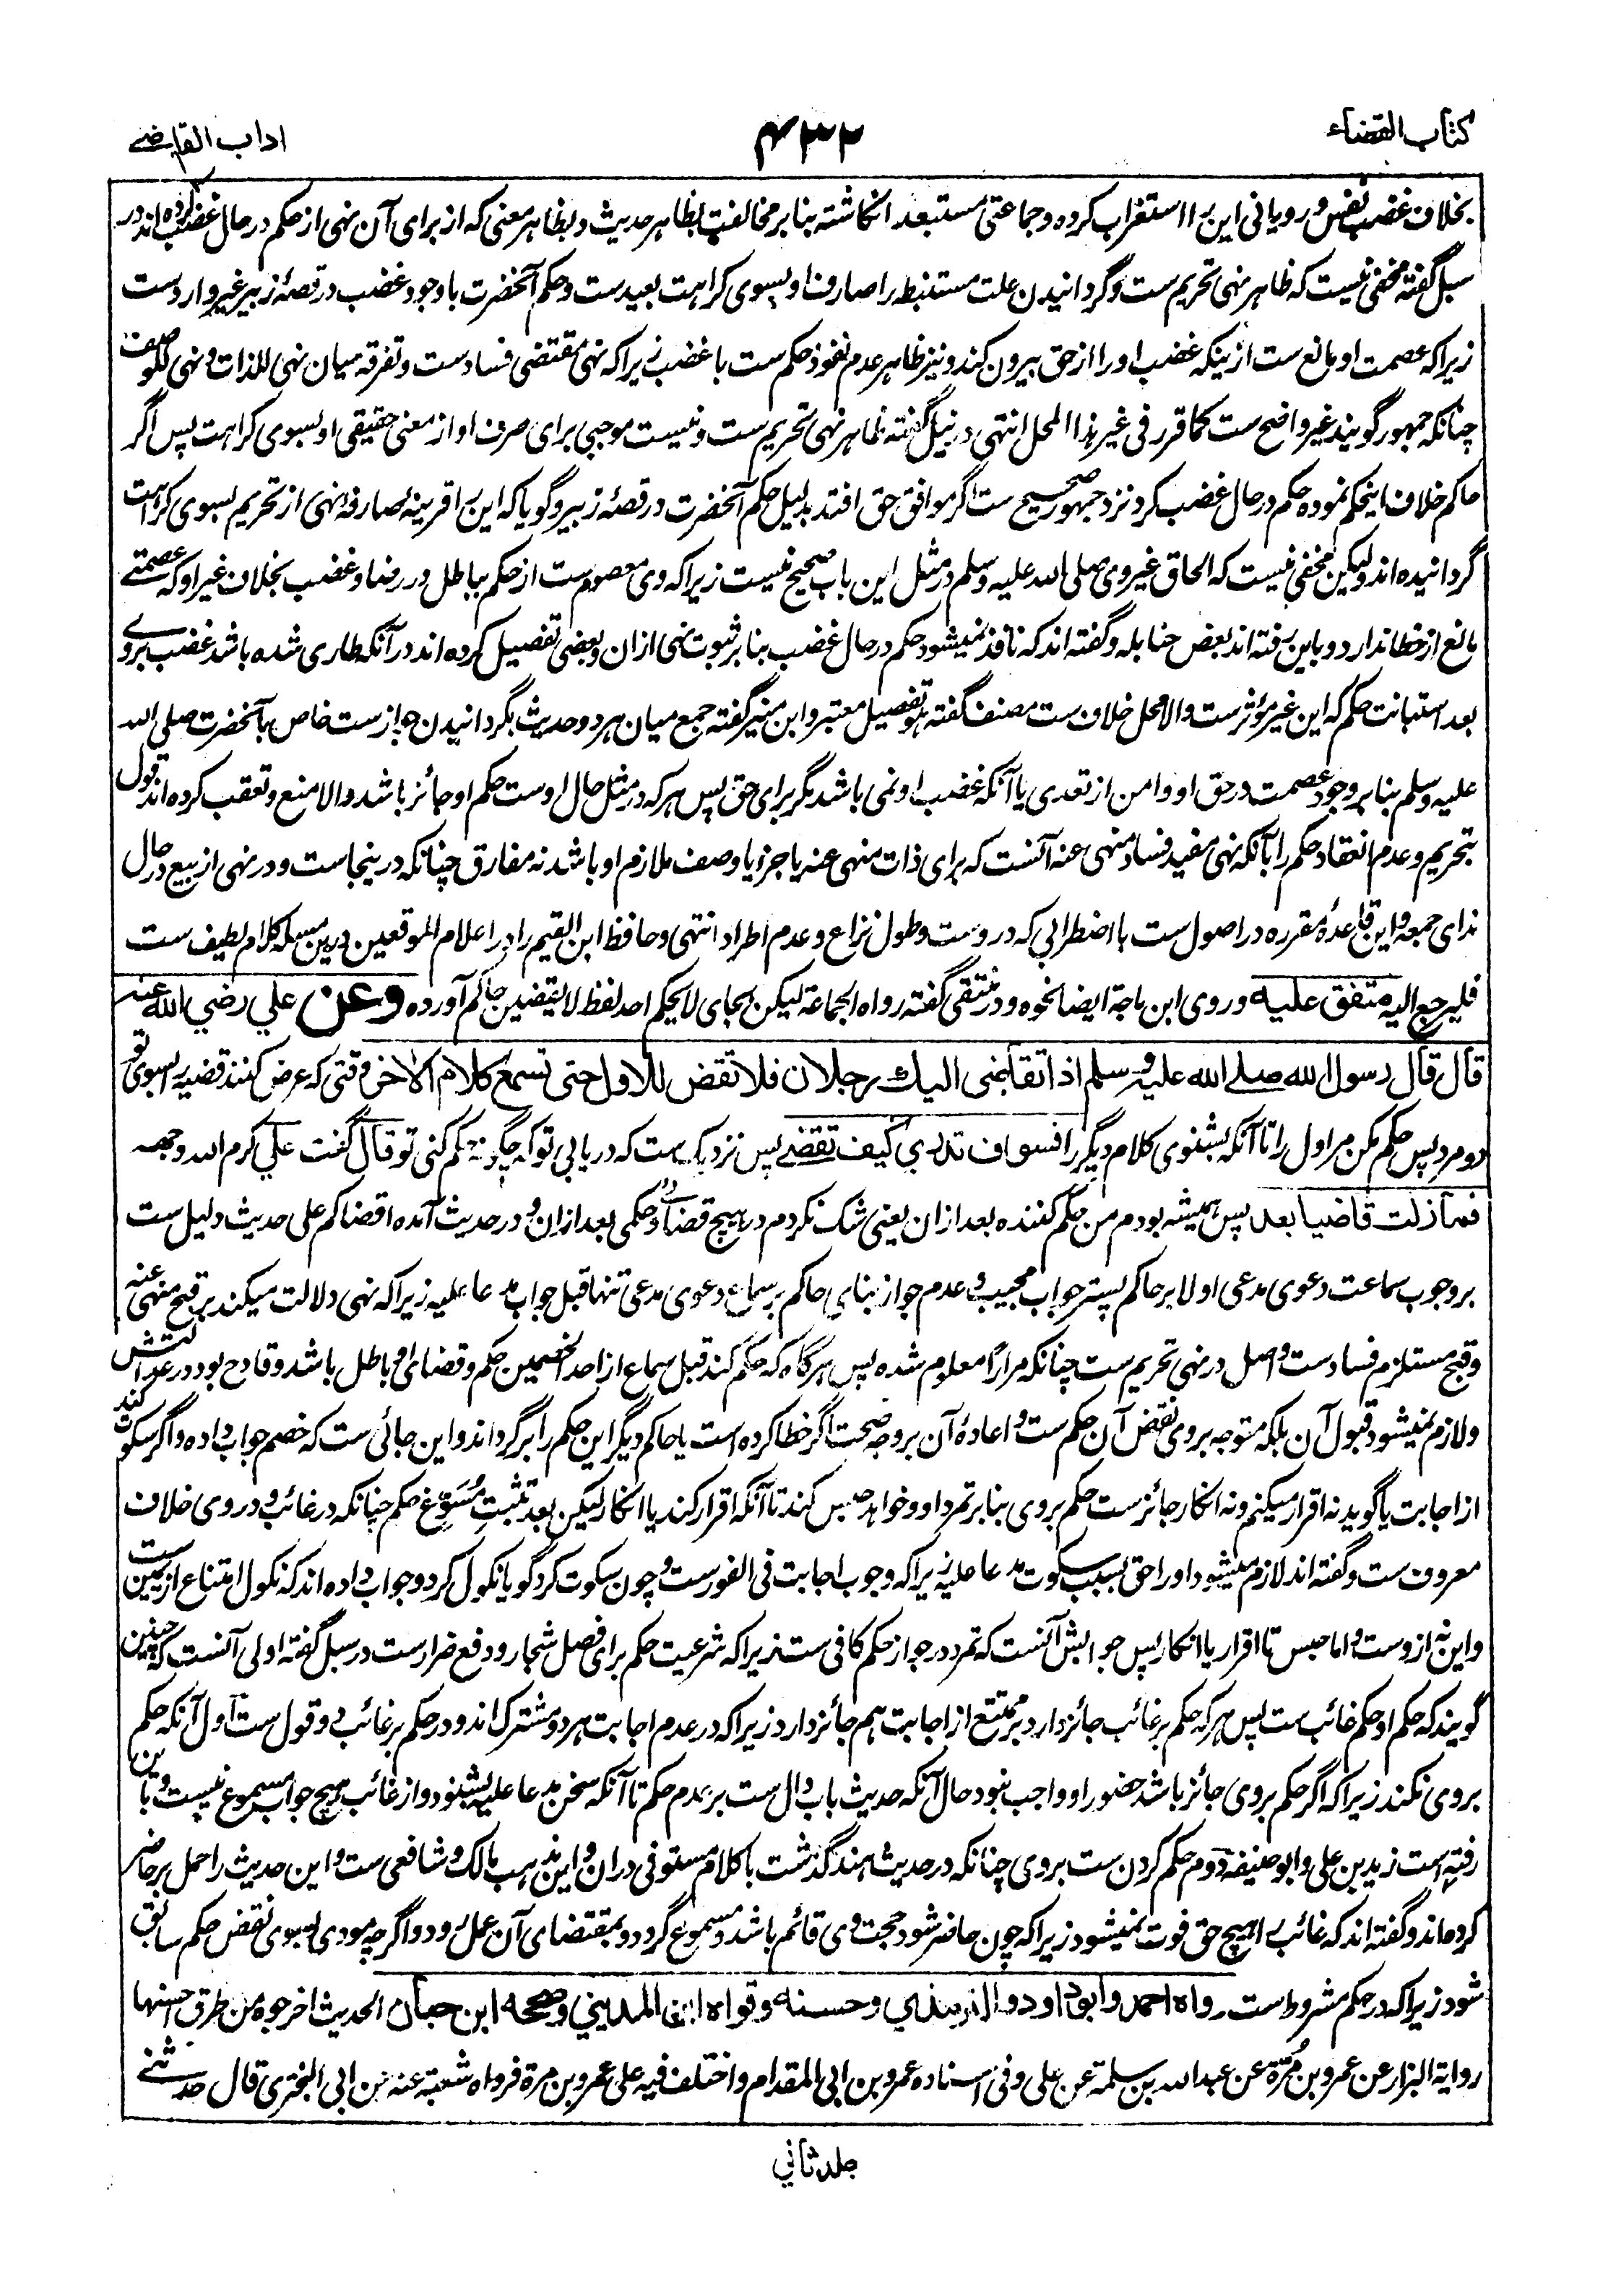 كتاب القضاء
۴۳۲
اداب القاضے
بخلاف غضب نفس و رویانی این را استغراب کرده و جماعتی مستبعد انگاشته بنا بر مخالفت بظاهر حدیث و بظاهر معنی که از برای آن نهی از حکم در حال غضب کرده اند در
سبل گفته مخفی نیست که ظاهر نهی تحریم ست و گردانیدن علت مستنبطه را صارف او بسوی کراهت بعید ست و حکم آنحضرت با وجود غضب در قصهٔ زبیر غیر وارد ست
زیرا که عصمت او مانع ست ازینکه غضب او را از حق بیرون کند و نیز ظاهر عدم نفوذ حکم ست با غضب زیرا که نهی مقتضی فساد ست و تفرقه میان نهی للذات و نهی للوصف
چنانکه جمهور گویند غیر واضح ست کما قرر فی غیر هذا المحل انتهی در نیل گفته ظاهر نهی تحریم ست و نیست موجبی برای صرف او از معنی حقیقی او بسوی کراهت پس اگر
حاکم خلاف اینحکم نموده حکم در حال غضب کرد نزد جمهور صحیح ست اگر موافق حق افتد بدلیل حکم آنحضرت در قصهٔ زبیر و گویا که این را قرینهٔ صارفه نهی از تحریم بسوی کراهت
گردانیده اند ولیکن مخفی نیست که الحاق غیر وی صلی الله علیه وسلم در مثل این باب صحیح نیست زیرا که وی معصوم ست از حکم بباطل در رضا و غضب بخلاف غیر او که عصمتے
مانع از خطا ندارد و باین رفته اند بعض حنابله و گفته اند که نافذ نمیشود حکم در حال غضب بنا بر ثبوت نهی ازان و بعضی تفصیل کرده اند در آنکه طاری شده باشد غضب بر وے
بعد استبانت حکم که این غیر مؤثر ست والا محل خلاف ست مصنف گفته هو تفصیل معتبر و ابن منیر گفته جمع میان هر دو حدیث بگردانیدن جواز ست خاص بآنحضرت صلی الله
علیه وسلم بنا بر وجود عصمت در حق او و امن از تعدی یا آنکه غضب او نمی باشد مگر برای حق پس هر که در مثل حال اوست حکم او جائز باشد والا منع و تعقب کرده اند قول
بتحریم و عدم انعقاد حکم را بآنکه نهی مفید فساد منهی عنه آنست که برای ذات منهی عنه یا جزء یا وصف ملازم او باشد نه مفارق چنانکه درینجاست و در نهی از بیع در حال
ندای جمعه و این قاعدهٔ مقرره در اصول ست با اضطرابی که دروست و طول نزاع و عدم اطراد انتهی و حافظ ابن القیم را در اعلام الموقعین درین مسئله کلام لطیف ست
فلیرجع الیه متفق علیه و روی ابن ماجة ایضا نحوه و در منتقی گفته رواه الجماعة لیکن بجای لا یحکم احد لفظ لا یقضین حاکم آورده وعن علي رضي الله عنه
قال قال رسول الله صلے الله عليه وسلم اذا تقاضى اليك رجلان فلا تقض للاول حتى تسمع كلام الاخر وقتی که عرض کنند قضیه را بسوی تو
دو مرد پس حکم مکن مر اول را تا آنکه بشنوی کلام دیگر را فسوف تدري كيف تقضے پس نزدیک ست که دریابی تو که چگونه حکم کنی تو قال گفت علي کرم الله وجهه
فما زلت قاضيا بعد پس همیشه بودم من حکم کننده بعد ازان یعنی شک نکردم در هیچ قضا و حکمی بعد ازان و در حدیث آمده اقضاکم علی حدیث دلیل ست
بر وجوب سماعت دعوی مدعی اولا بر حاکم پستر جواب مجیب و عدم جواز بنای حاکم بر سماع دعوی مدعی تنها قبل جواب مدعا علیه زیرا که نهی دلالت میکند بر قبح منهی عنه
و قبح مستلزم فساد ست و اصل در نهی تحریم ست چنانکه مرارا معلوم شده پس هرگاه که حکم کند قبل سماع از احد الخصمین حکم و قضای او باطل باشد و قادح بود در عدالتش
و لازم نمیشود قبول آن بلکه متوجه بر وی نقض آن حکم ست و اعادهٔ آن بر وجه صحت اگر خطا کرده است یا حاکم دیگر این حکم را برگرداند و این جائی ست که خصم جواب داده و اگر سکوت کند
از اجابت یا گوید نه اقرار میکنم و نه انکار جائز ست حکم بر وی بنا بر تمرد او و خواهد حبس کند تا آنکه اقرار کند یا انکار لیکن بعد تثبت مُسَوِّغ حکم چنانکه در غائب و در وی خلاف
معروف ست و گفته اند لازم میشود او را حق بسبب سکوت مدعا علیه زیرا که وجوب اجابت فی الفور ست و چون سکوت کرد گویا نکول کرد و جواب داده اند که نکول امتناع از یمین ست
و این نه ازوست و اما حبس تا اقرار یا انکار پس جوابش آنست که تمرد در جواز حکم کافی ست زیرا که شرعیت حکم برای فصل شجار و دفع ضرار ست در سبل گفته اولی آنست که چنین
گویند که حکم او حکم غائب ست پس هر که حکم بر غائب جائز دارد بر ممتنع از اجابت هم جائز دارد زیرا که در عدم اجابت هر دو مشترک اند و در حکم بر غائب دو قول ست اول آنکه حکم
بر وی نکند زیرا که اگر حکم بر وی جائز باشد حضور او واجب نبود حال آنکه حدیث باب دال ست بر عدم حکم تا آنکه سخن مدعا علیه بشنود و از غائب هیچ جواب مسموع نیست و باین
رفته است زید بن علی و ابو حنیفه دوم حکم کردن ست بر وی چنانکه در حدیث هند گذشت با کلام مستوفی دران و این مذهب مالک و شافعی ست و این حدیث را حمل بر حاضر
کرده اند و گفته اند که غائب را هیچ حق فوت نمیشود زیرا که چون حاضر شود حجت وی قائم باشد و مسموع گردد و بمقتضای آن عمل رود و اگرچه مودی بسوی نقض حکم سابق
شود زیرا که در حکم مشروط است رواه احمد وابوداود والترمذي وحسنه وقواه ابن المديني وصححه ابن حبان الحدیث اخرجوه من طرق احسنها
روایة البزار عن عمرو بن مُرّة عن عبدالله بن سلمة عن علی وفی اسناده عمرو بن ابی المقدام واختلف فیه علی عمرو بن مرة فرواه شعبة عنه عن ابی البختری قال حدثنے
جلد ثاني